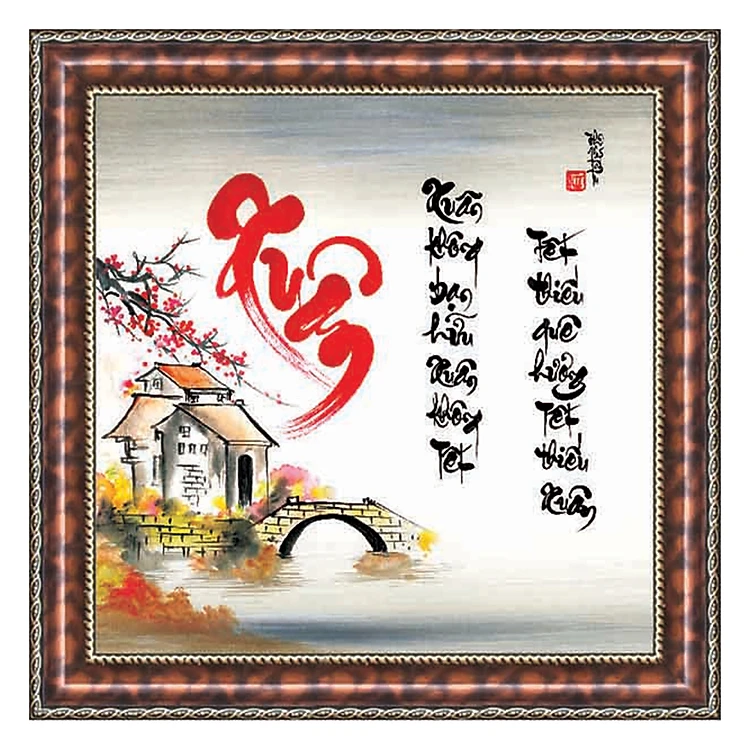 Xuân
Xuân
không
bạn
hữu
Xuân
không
Tết
Tết
thiếu
quê
hương
Tết
thiếu
Xuân